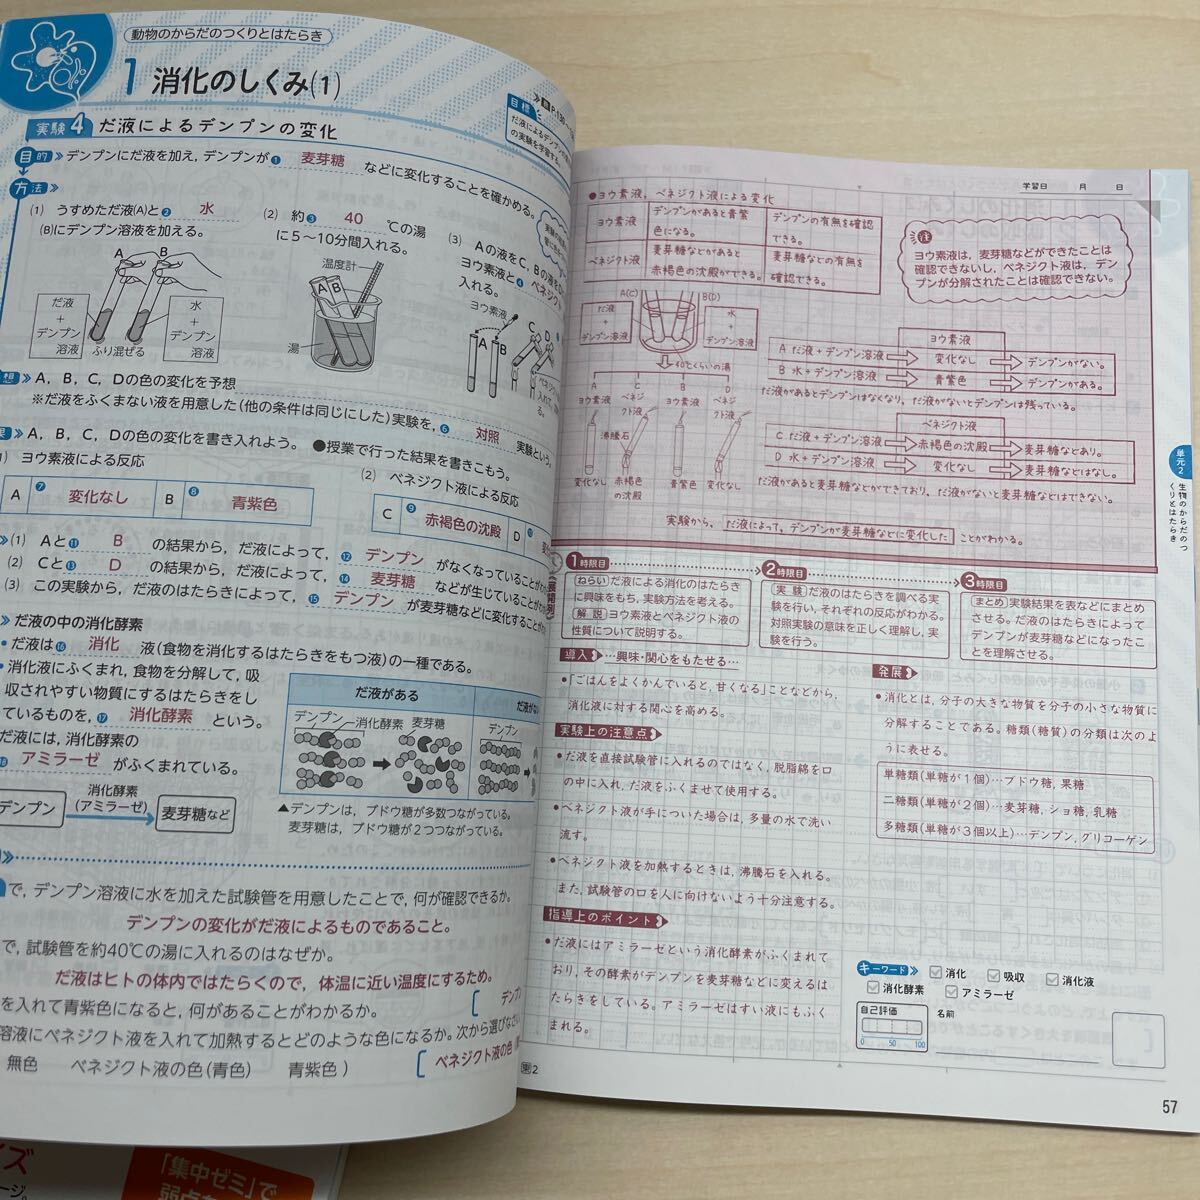 動物のからだのつくりとはたらき
1 消化のしくみ(1)
目標
だ液によるデンプンの
の実験を学習する。
実験4 だ液によるデンプンの変化
目的 デンプンにだ液を加え，デンプンが❶ 麦芽糖 などに変化することを確かめる。
方法
(1) うすめただ液(A)と❷ 水
(B)にデンプン溶液を加える。
A B
だ液
+
デンプン
溶液
水
+
デンプン
溶液
ふり混ぜる
(2) 約❸ 40 ℃の湯
に5～10分間入れる。
温度計
A B
湯
(3) Aの液をC，Bの液を
ヨウ素液と❹ ベネジク
入れる。
ヨウ素液
A B
C D
想 A，B，C，Dの色の変化を予想
※だ液をふくまない液を用意した(他の条件は同じにした)実験を，❻ 対照 実験という。
果 A，B，C，Dの色の変化を書き入れよう。 ●授業で行った結果を書きこもう。
1) ヨウ素液による反応
A ❼ 変化なし B ❽ 青紫色
(2) ベネジクト液による反応
C ❾ 赤褐色の沈殿 D
(1) Aと⓫ B の結果から，だ液によって，⓬ デンプン がなくなっていることがわ
(2) Cと⓭ D の結果から，だ液によって，⓮ 麦芽糖 などが生じていることがわ
(3) この実験から，だ液のはたらきによって，⓯ デンプン が麦芽糖などに変化すること
だ液の中の消化酵素
・だ液は⓰ 消化 液(食物を消化するはたらきをもつ液)の一種である。
・消化液にふくまれ，食物を分解して，吸
収されやすい物質にするはたらきをし
ているものを，⓱ 消化酵素 という。
だ液には，消化酵素の
⓲ アミラーゼ がふくまれている。
デンプン 消化酵素(アミラーゼ) 麦芽糖など
だ液がある
だ液がな
デンプン 消化酵素 麦芽糖
デンプン
▲デンプンは，ブドウ糖が多数つながっている。
麦芽糖は，ブドウ糖が2つつながっている。
で，デンプン溶液に水を加えた試験管を用意したことで，何が確認できるか。
デンプンの変化がだ液によるものであること。
で，試験管を約40℃の湯に入れるのはなぜか。
だ液はヒトの体内ではたらくので，体温に近い温度にするため。
を入れて青紫色になると，何があることがわかるか。
［ デンプ
溶液にベネジクト液を入れて加熱するとどのような色になるか。次から選びなさ
［ ベネジクト液の色
無色 ベネジクト液の色(青色) 青紫色 )
「集中ゼミ」で
学習日 月 日
●ヨウ素液，ベネジクト液による変化
ヨウ素液 デンプンがあると青紫色になる。 デンプンの有無を確認できる。
ベネジクト液 麦芽糖などがあると赤褐色の沈殿ができる。 麦芽糖などの有無を確認できる。
注
ヨウ素液は，麦芽糖などができたことは
確認できないし，ベネジクト液は，デン
プンが分解されたことは確認できない。
A(C) B(D)
だ液
+
デンプン溶液
水
+
デンプン溶液
40℃くらいの湯
A C B D
ヨウ素液 ベネジクト液 ヨウ素液 ベネジクト液
沸騰石
変化なし 赤褐色の沈殿 青紫色 変化なし
ヨウ素液
A だ液+デンプン溶液 変化なし デンプンがない。
B 水+デンプン溶液 青紫色 デンプンがある。
だ液があるとデンプンはなくなり，だ液がないとデンプンは残っている。
ベネジクト液
C だ液+デンプン溶液 赤褐色の沈殿 麦芽糖などあり。
D 水+デンプン溶液 変化なし 麦芽糖などはなし。
だ液があると麦芽糖などができており，だ液がないと麦芽糖などはできない。
実験から，だ液によって，デンプンが麦芽糖などに変化した ことがわかる。
1時限目
ねらい だ液による消化のはたらき
に興味をもち，実験方法を考える。
解説 ヨウ素液とベネジクト液の
性質について説明する。
2時限目
実験 だ液のはたらきを調べる実
験を行い，それぞれの反応がわかる。
対照実験の意味を正しく理解し，実
験を行う。
3時限目
まとめ 実験結果を表などにまとめ
させる。だ液のはたらきによって
デンプンが麦芽糖などになったこ
とを理解させる。
導入 …興味・関心をもたせる…
・「ごはんをよくかんでいると，甘くなる」ことなどから，
消化液に対する関心を高める。
実験上の注意点
・だ液を直接試験管に入れるのではなく，脱脂綿を口
の中に入れ，だ液をふくませて使用する。
・ベネジクト液が手についた場合は，多量の水で洗い
流す。
・ベネジクト液を加熱するときは，沸騰石を入れる。
また，試験管の口を人に向けないよう十分注意する。
指導上のポイント
・だ液にはアミラーゼという消化酵素がふくまれて
おり，その酵素がデンプンを麦芽糖などに変えるは
たらきをしている。アミラーゼはすい液にもふく
まれる。
発展
・消化とは，分子の大きな物質を分子の小さな物質に
分解することである。糖類(糖質)の分類は次のよ
うに表せる。
単糖類(単糖が1個)…ブドウ糖，果糖
二糖類(単糖が2個)…麦芽糖，ショ糖，乳糖
多糖類(単糖が3個以上)…デンプン，グリコーゲン
キーワード 消化 吸収 消化液
消化酵素 アミラーゼ
自己評価
0 50 100
名前
単元2
生物のからだのつくりとはたらき
東2
57